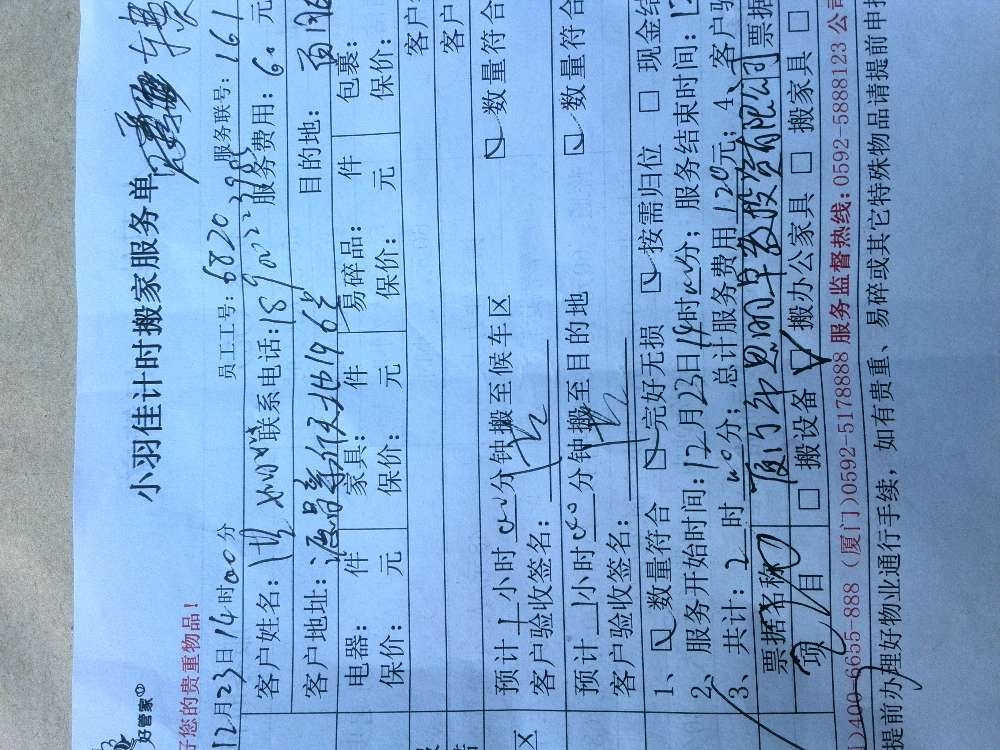 好管家
小羽佳计时搬家服务单
车费
好您的贵重物品！
员工工号：6820 服务联号：161
12月23日14时00分
客户姓名：洪 联系电话：189 服务费用：60 元
客户地址： 目的地：
电器： 件 家具： 件 易碎品： 件 包裹：
保价： 元 保价： 元 保价： 元 保价：
客户
客户
预计1小时00分钟搬至候车区 数量符合
客户验收签名：
预计1小时00分钟搬至目的地 数量符合
客户验收签名：
1、 数量符合 完好无损 按需归位 现金结
2、服务开始时间：12月23日14时00分；服务结束时间：
3、共计：2时00分； 总计服务费用120元；4、客户验
票据名称 厦门 思明早教投资有限公司 票据
项 目 搬设备 搬办公家具 搬家具
)400-6655-888 (厦门)0592-5178888 服务监督热线：0592-5888123 公司
提前办理好物业通行手续，如有贵重、易碎或其它特殊物品请提前申报